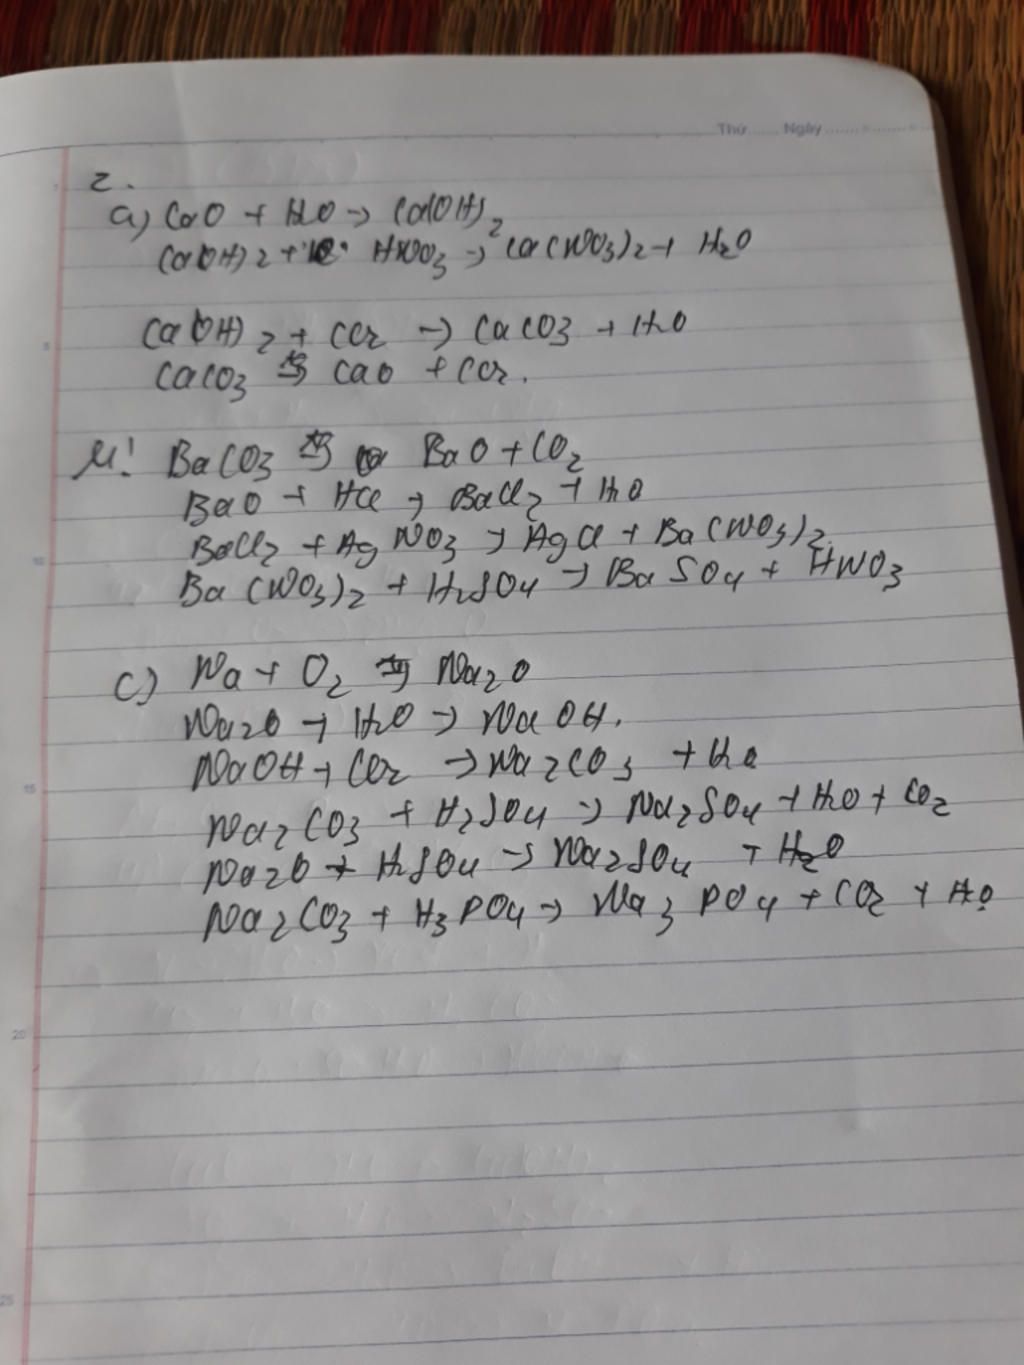 Thứ ...... Ngày ...............
2.
a) CaO + H2O → Ca(OH)2
Ca(OH)2 + HNO3 → Ca(NO3)2 + H2O
5
Ca(OH)2 + CO2 → CaCO3 + H2O
CaCO3 → CaO + CO2.
BaCO3 → BaO + CO2
BaO + HCl → BaCl2 + H2O
BaCl2 + AgNO3 → AgCl + Ba(NO3)2
10
Ba(NO3)2 + H2SO4 → BaSO4 + HNO3
c) Na + O2 → Na2O
Na2O + H2O → NaOH.
NaOH + CO2 → Na2CO3 + H2O
15
Na2CO3 + H2SO4 → Na2SO4 + H2O + CO2
Na2O + H2SO4 → Na2SO4 + H2O
Na2CO3 + H3PO4 → Na3PO4 + CO2 + H2O
20
25